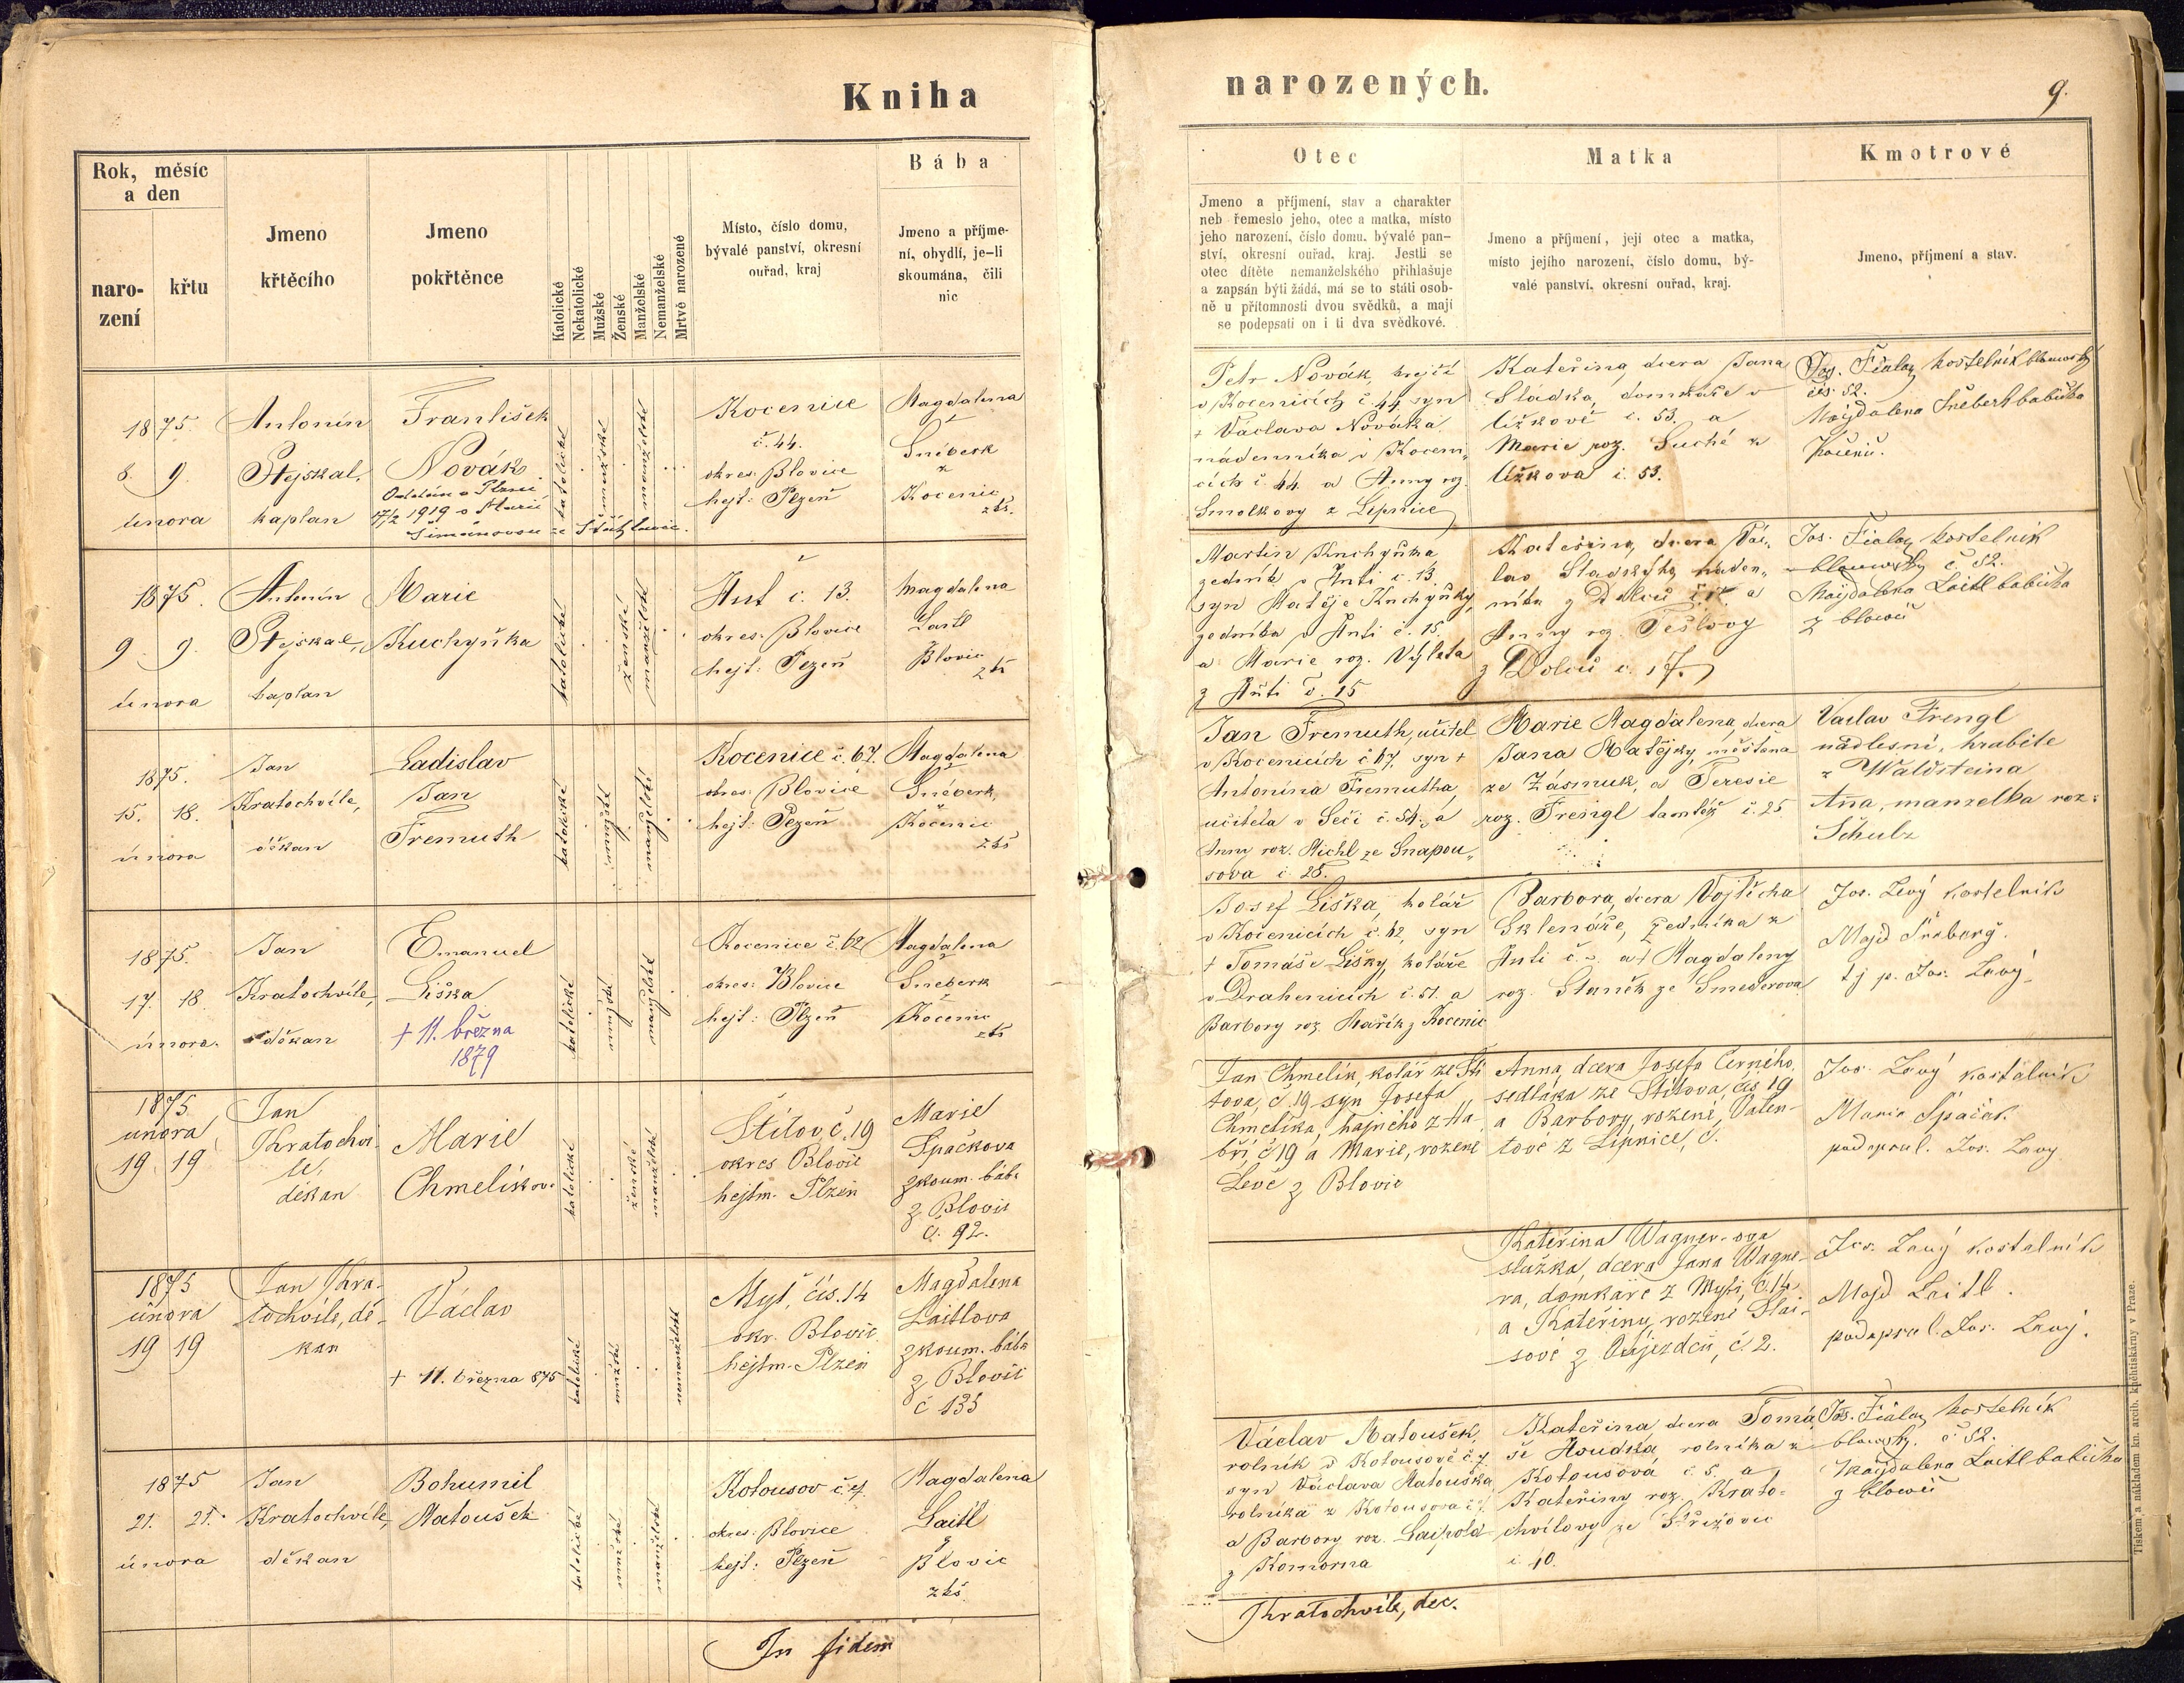 Kniha
narozených.
9.
Rok, měsíc
a den
naro-
zení
křtu
Jmeno
křtěcího
Jmeno
pokřtěnce
Katolické
Nekatolické
Mužské
Ženské
Manželské
Nemanželské
Mrtvě narozené
Místo, číslo domu,
bývalé panství, okresní
ouřad, kraj
Bába
Jmeno a příjme-
ní, obydlí, je-li
skoumána, čili
nic
Otec
Jmeno a příjmení, stav a charakter
neb řemeslo jeho, otec a matka, místo
jeho narození, číslo domu, bývalé pan-
ství, okresní ouřad, kraj. Jestli se
otec dítěte nemanželského přihlašuje
a zapsán býti žádá, má se to státi osob-
ně u přítomnosti dvou svědků, a mají
se podepsati on i ti dva svědkové.
Matka
Jmeno a příjmení, její otec a matka,
místo jejího narození, číslo domu, bý-
valé panství, okresní ouřad, kraj.
Kmotrové
Jmeno, příjmení a stav.
1875.
8. 9.
února
Antonín
Stejskal,
kaplan
František
Novák
17/2 1919 s Marií
Šimánovou ze
katolické
mužské
manželské
Kocenice
č. 44.
okres: Blovice
hejt: Plzeň
Magdalena
Šnéberk
z
Kocenic
zkš.
Petr Novák, krejčí
v Kocenicích č. 44, syn
+ Václava Nováka
nádenníka v Koceni„
cích č. 44. a Anny roz.
Smolkovy z Lipnice
Kateřina, dcera Jana
Sládka, domkáře v
Užkově č. 53. a
Marie roz. Suché z
Užkova č. 53.
Jos. Fiala, kostelník blowský
čís. 52.
Majdalena Šnéberk babička
1875.
9. 9.
února
Antonín
Stejskal,
kaplan
Marie
Kuchyňka
katolické
ženské
manželské
Huť č. 13.
okres: Blovice
hejt: Plzeň
Magdalena
Laitl
Blovic
zkš
Martin Kuchyňka
zedník v Huti č. 13.
syn Matěje Kuchyňky,
zedníka v Huti č. 15.
a Marie roz. Výleta
z Huti č. 15
Kateřina, dcera Vác„
lava Sladkýho náden„
níka z Dolců č. 17. a
Anny roz. Tešlovy
z Dolců č. 17.
Jos. Fiala, kostelník
blowský č. 52.
Majdalena Laitl babička
z Blowic
1875.
15. 18.
února
Jan
Kratochvíle,
děkan
Ladislav
Jan
Fremuth
katolické
mužské
manželské
Kocenice č. 67.
okres: Blovice
hejt: Plzeň
Magdalena
Šnéberk,
Kocenic
zkš
Jan Fremuth, učitel
v Kocenicích č. 67, syn +
Antonína Fremutha,
učitela v Seči č. 54. a
Anny roz. Michl ze Snapou„
sova č. 28.
Marie Magdalena, dcera
Jana Matějky, měšťana
ze Zásmuk, a Teresie
roz. Frengl tamtéž č. 25
Vaclav Frengl
nadlesní, hraběte
z Waldsteina
Aña, manželka roz:
Schulz
1875.
17. 18.
února.
Jan
Kratochvíle,
děkan
Emanuel
Liška
+ 11. března
1879
katolické
mužské
manželské
Kocenice č. 62
okres: Blovice
hejt: Plzeň
Magdalena
Šneberk
Kocenic
zkš
Josef Liška, kolář
v Kocenicích č. 62, syn
+ Tomáše Lišky, koláře
v Drahenicích č. 51. a
Barbory roz. Mařík z Kocenic
Barbora, dcera Vojtěcha
Sklenáře, zedníka z
Huti č. a + Magdaleny
roz. Staněk ze Smederova
Jos. Levý kostelník
Majd Šneberg.
tj p. Jos. Levý.
1875
února
19 19
Jan
Kratochví-
le,
děkan
Marie
Chmelíkov.
katolické
ženské
manželské
Štítov, č. 19
okres Blovic
hejtm. Plzeň
Marie
Špačkova
zkoum. bába
z Blovic
č. 92.
Jan Chmelík, kolář ze Ští
tova, č. 19 syn Josefa
Chmelíka, hajného z Há
bří, č 19 a Marie, rozené
Levé z Blovic
Anna, dcera Josefa Černého,
sedláka ze Štítova, čís. 19
a Barbory, rozené, Valen-
tové z Lipnice, č.
Jos. Levý kostelník
Marie Špaček
podepsal. Jos. Levy
1875
února
19 19
Jan Kra-
tochvíle, dě-
kan
Václav
+ 11. března 875
katolické
mužské
nemanželské
Myť, čís. 14
okr. Blovic.
hejtm. Plzeň
Magdalena
Laitlova
zkoum. bába
z Blovic
č 133
Kateřina Wagner-ova
služka, dcera Jana Wagne-
ra, domkáře z Myti, č. 14.
a Kateřiny, rozené Slai-
sové z Oujezdců, č. 2.
Jos. Levý kostelník
Majd Laitl.
podepsal. Jos. Levý.
1875
21. 21.
února
Jan
Kratochvíle,
děkan
Bohumil
Matoušek
katolické
mužské
manželské
Kotousov č. 7.
okres: Blovice
hejt: Plzeň
Magdalena
Laitl
z
Blovic
zkš.
Václav Matoušek,
rolník v Kotousově č. 7.
syn Václava Matouška,
rolníka z Kotousova č. 7.
a Barbory roz. Laipold
z Komorna
Kateřina, dcera Tomá
še Houdka, rolníka z
Kotousova č. 5. a
Kateřiny roz. Krato-
chvílovy ze Střížovic
č. 10.
Jos. Fiala, kostelník
blowský. č 52.
Majdalena Laitl babička
z Blowic
In fidem
Kratochvíle, dec.
Tiskem a nákladem kn. arcib. knihtiskárny v Praze.